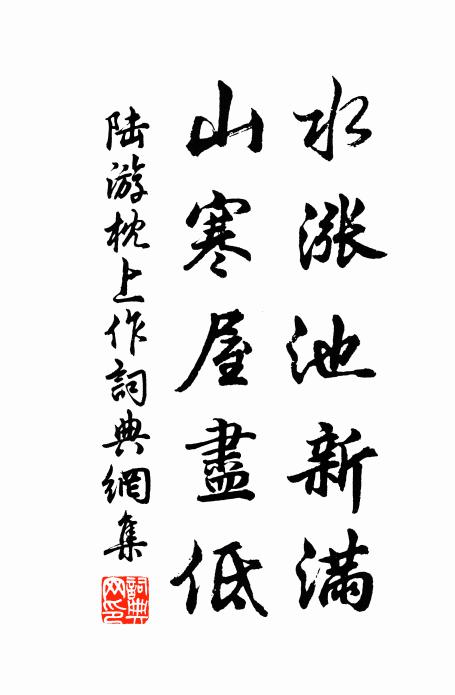 水漲池新滿
山寒屋盡低
陸游枕上作詞典網集
詞典网印